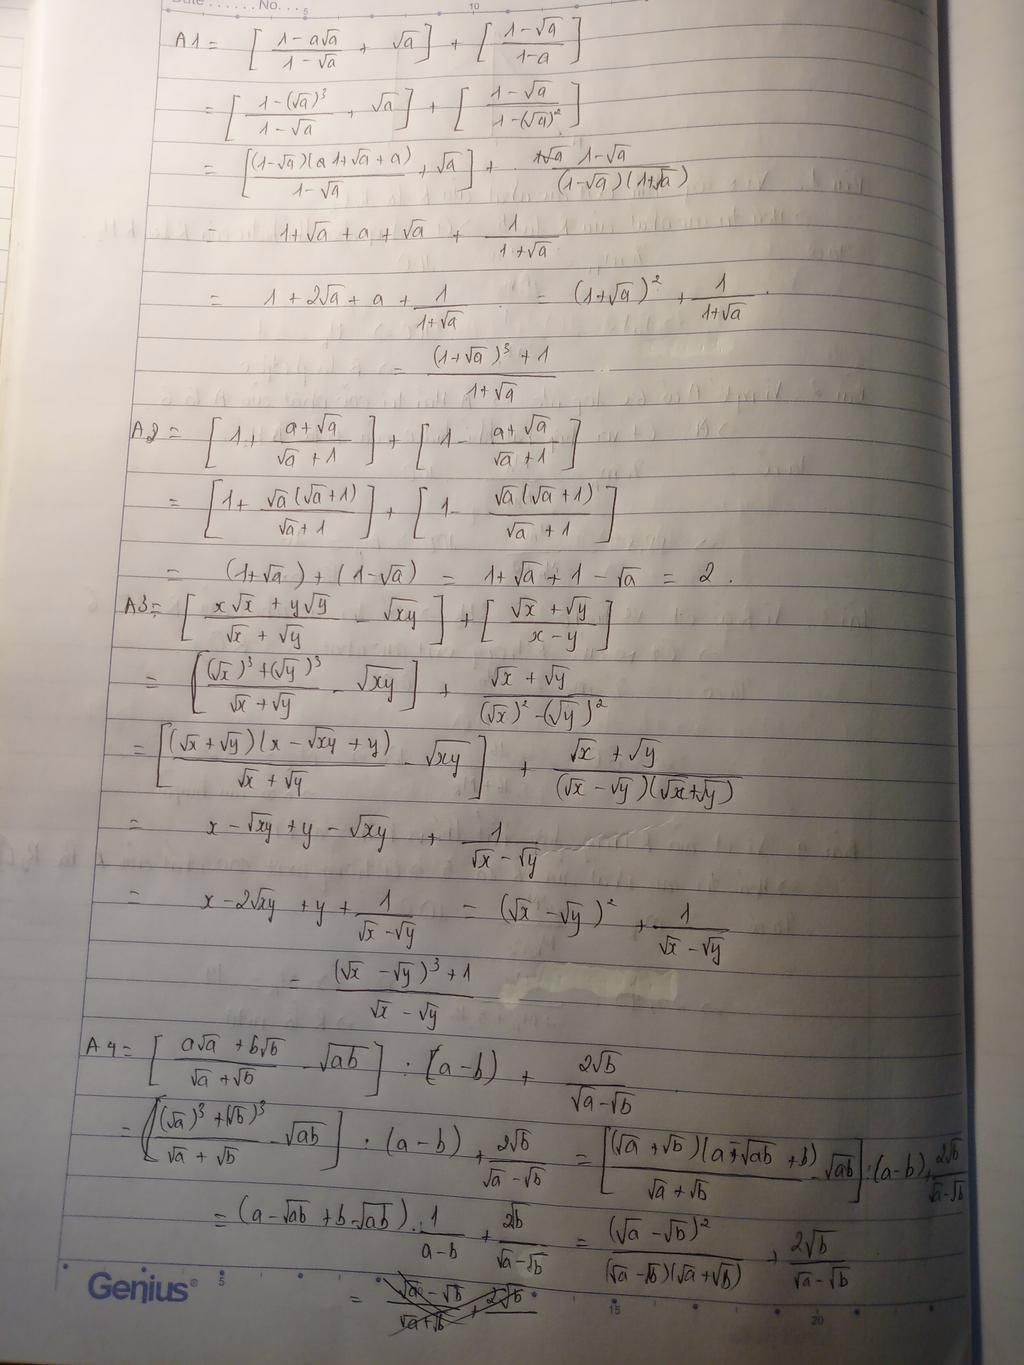 Date ...... No. ... 5 10
A1 = [ (1-a√a)/(1-√a) + √a ] + [ (1-√a)/(1-a) ]
= [ (1-(√a)³)/(1-√a) + √a ] + [ (1-√a)/(1-(√a)²) ]
= [ (1-√a)(1+√a+a)/(1-√a) + √a ] + (1-√a)/((1-√a)(1+√a))
= 1+√a+a+√a + 1/(1+√a)
= 1+2√a+a+ 1/(1+√a) = (1+√a)² + 1/(1+√a).
= ((1+√a)³+1)/(1+√a)
A2 = [ 1+ (a+√a)/(√a+1) ] + [ 1- (a+√a)/(√a+1) ]
= [ 1+ √a(√a+1)/(√a+1) ] + [ 1- √a(√a+1)/(√a+1) ]
= (1+√a)+(1-√a) = 1+√a+1-√a = 2.
A3 = [ (x√x+y√y)/(√x+√y) - √xy ] + [ (√x+√y)/(x-y) ]
= [ ((√x)³+(√y)³)/(√x+√y) - √xy ] + (√x+√y)/((√x)²-(√y)²)
= [ (√x+√y)(x-√xy+y)/(√x+√y) - √xy ] + (√x+√y)/((√x-√y)(√x+√y))
= x-√xy+y-√xy + 1/(√x-√y)
= x-2√xy+y+ 1/(√x-√y) = (√x-√y)² + 1/(√x-√y)
= ((√x-√y)³+1)/(√x-√y)
A4 = [ (a√a+b√b)/(√a+√b) - √ab ] : (a-b) + 2√b/(√a-√b)
= [ ((√a)³+(√b)³)/(√a+√b) - √ab ] : (a-b) + 2√b/(√a-√b) = [ (√a+√b)(a-√ab+b)/(√a+√b) - √ab ] : (a-b) + 2√b/(√a-√b)
= (a-√ab+b-√ab) . 1/(a-b) + 2b/(√a-√b) = (√a-√b)²/((√a-√b)(√a+√b)) + 2√b/(√a-√b)
= (√a-√b)/(√a+√b) + 2√b
Genius® 5 15 20